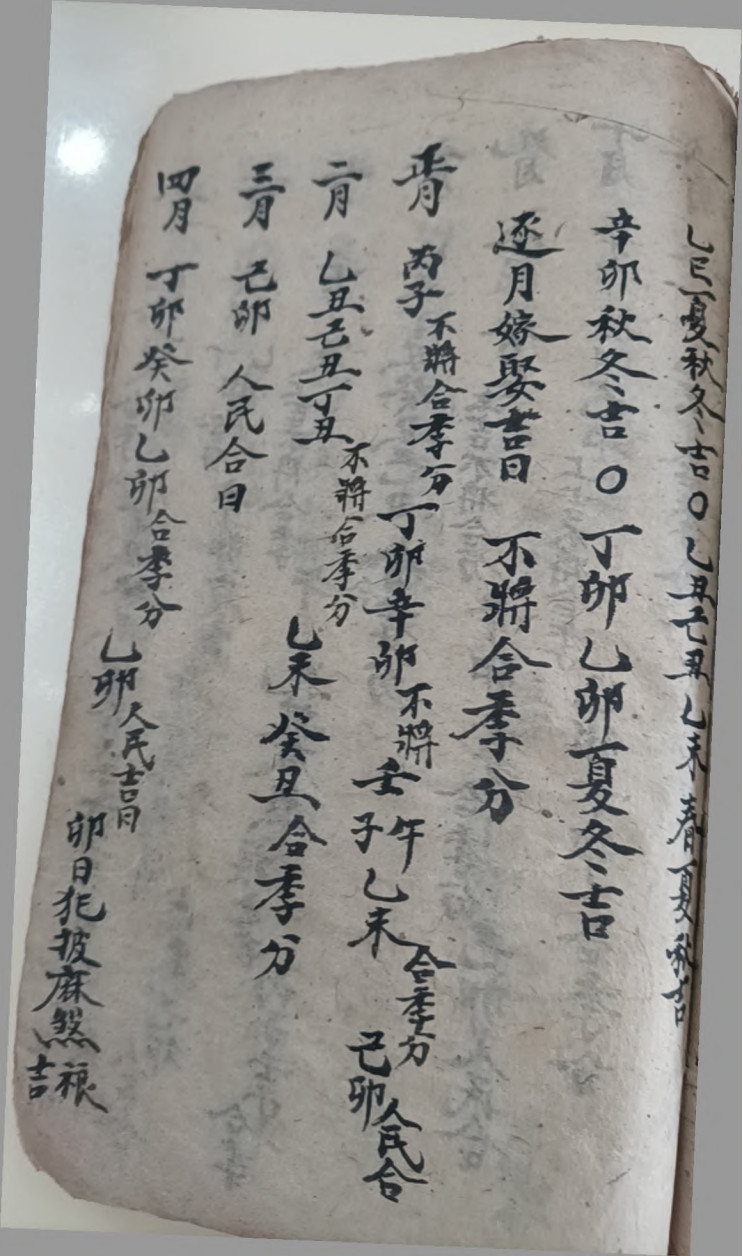 乙巳夏秋冬吉〇乙丑己丑乙未春夏秋吉
辛卯秋冬吉〇丁卯乙卯夏冬吉
逐月嫁娶吉日 不將合季分
正月 丙子不將合季分丁卯辛卯不將壬子午乙未合季分己卯人民合
二月 乙丑己丑丁丑不將合季分乙未癸丑合季分
三月 己卯 人民合日
四月 丁卯癸卯乙卯合季分乙卯人民吉日卯日犯披麻煞 吉